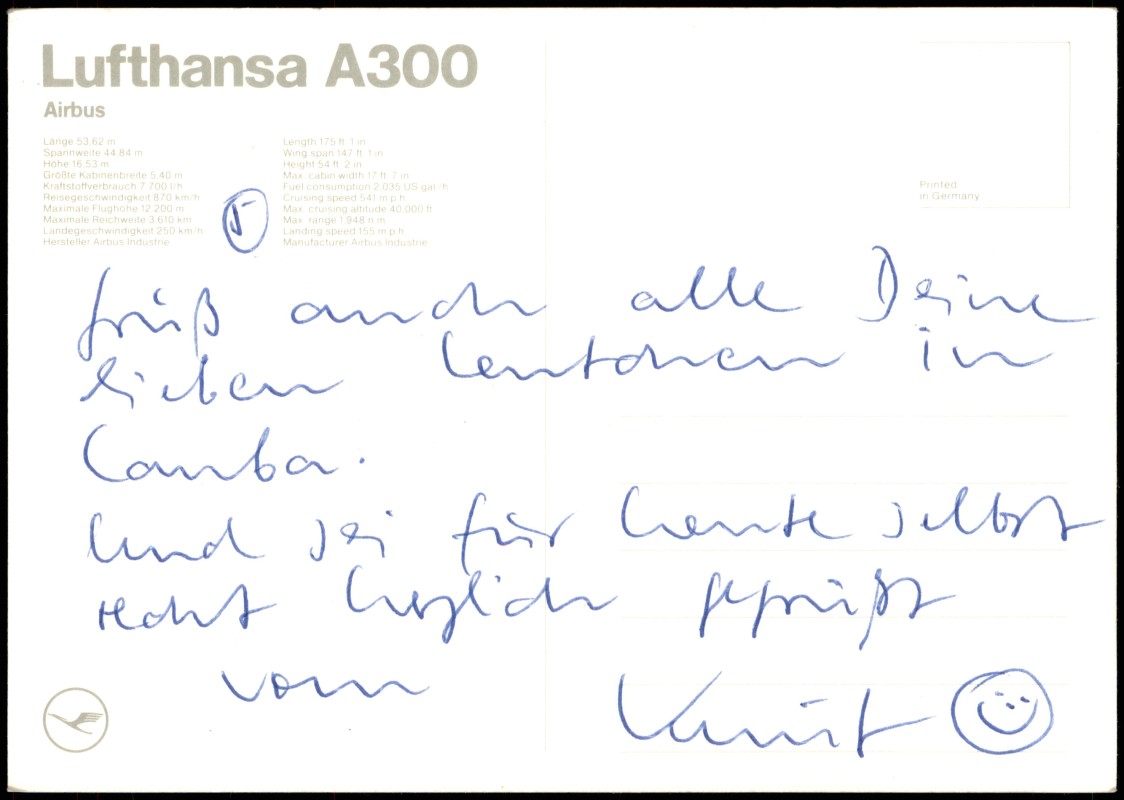 Lufthansa A300
Airbus
Länge 53,62 m
Spannweite 44,84 m
Höhe 16,53 m
Größte Kabinenbreite 5,40 m
Kraftstoffverbrauch 7 700 l/h
Reisegeschwindigkeit 870 km/h
Maximale Flughöhe 12.200 m
Maximale Reichweite 3.610 km
Landegeschwindigkeit 250 km/h
Hersteller Airbus Industrie
Length 175 ft. 1 in
Wing span 147 ft. 1 in
Height 54 ft. 2 in
Max. cabin width 17 ft. 7 in
Fuel consumption 2,035 US gal./h
Cruising speed 541 m.p.h
Max. cruising altitude 40,000 ft
Max. range 1,948 n.m
Landing speed 155 m.p.h
Manufacturer Airbus Industrie
Printed
in Germany
5
Grüß auch alle Deine
lieben Leutchen in
Camba.
Und sei für heute selbst
recht herzlich gegrüßt
vom Knut